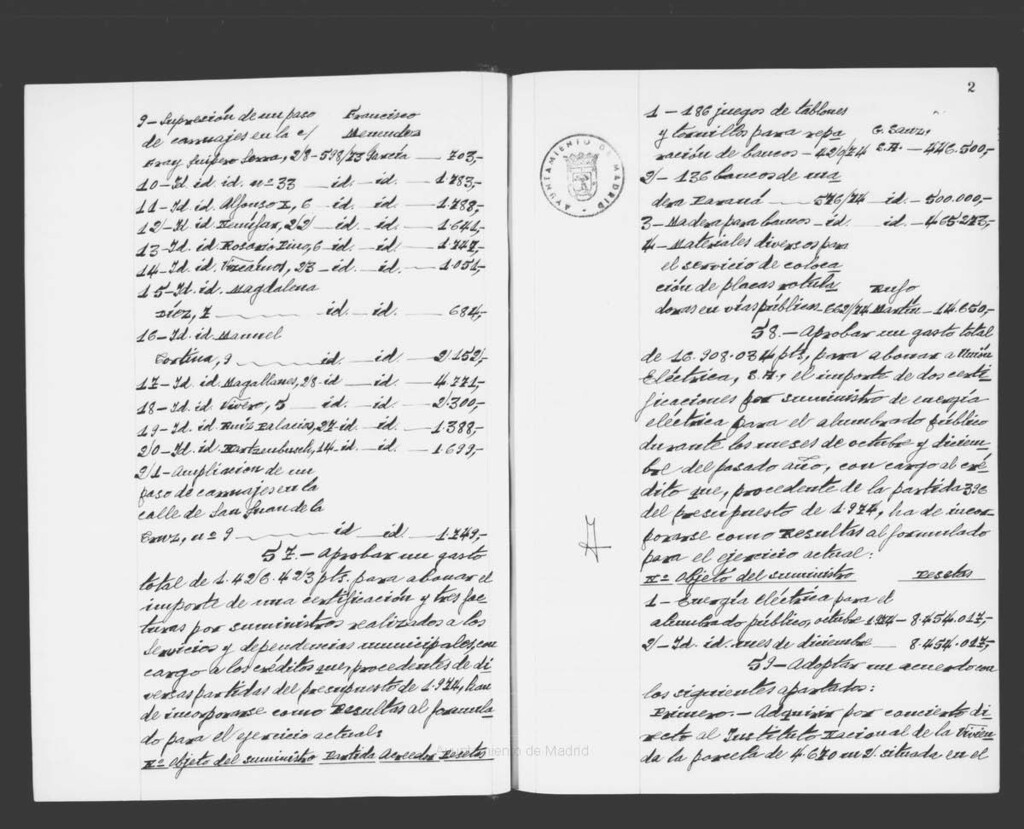 9-Supresión de un paso Francisco
de carruajes en la c/ Menendez
Fray Junípero Serra, 28-598/73 García — 703,-
10-Id id. id. nº 33 — id. — id. — 1.783,-
11-Id. id. Alfonso X, 6 — id. — id. — 1.788,-
12-Id id. 22 — id. — id. — 1.641,-
13-Id. id. Rosario Pino, 6 id. — id. — 1.747,-
14-Id. id. 23 — id. — id. — 1.051,-
15-Id. id. Magdalena
Diez, 7 — id. — id. — 684,-
16-Id. id. Manuel
Cortina, 9 — id. — id. — 2.152,-
17-Id. id. Magallanes, 28 id. — id. — 4.771,-
18-Id. id. Vivero, 5 — id. — id. — 2.300,-
19-Id. id. Ruiz Palacios, 27 id. — id. — 1.388,-
20-Id. id. Hartzenbusch, 14 id. — id. — 1.699,-
21-Ampliacion de un
paso de carruajes en la
calle de San Juan de la
Cruz, nº 9 — id — id. — 1.749,-
57.- Aprobar un gasto
total de 1.426.423 pts. para abonar el
importe de una certificación y tres fac
turas por suministros realizados a los
Servicios y dependencias municipales, con
cargo a los créditos que, procedentes de di
versas partidas del presupuesto de 1.974, han
de incorporarse como Resultas al formula
do para el ejercicio actual:
Nº Objeto del suministro Partida Acreedor Pesetas
2
1-186 juegos de tablones
y tornillos para repa G. Sanz,
ración de bancos - 429/74 S.A. - 446.500,-
2-136 bancos de ma
dera Paraná — 576/74 id. - 500.000,-
3-Madera para bancos - id. id. - 465.273,-
4-Materiales diversos para
el servicio de coloca
ción de placas rotula Rufo
doras en vías públicas - 662/74 Martín - 14.650,-
58.- Aprobar un gasto total
de 16.908.034 pts, para abonar a Unión
Eléctrica, S.A., el importe de dos certi
ficaciones por suministro de energía
eléctrica para el alumbrado público
durante los meses de octubre y diciem
bre del pasado año, con cargo al cré
dito que, procedente de la partida 396
del presupuesto de 1.974, ha de incor
porarse como Resultas al formulado
para el ejercicio actual:
Nº Objeto del suministro Pesetas
1-Energía eléctrica para el
alumbrado público, octubre 1974 - 8.454.017,-
2-Id. id. mes de diciembre — 8.454.017,-
59-Adoptar un acuerdo con
los siguientes apartados:
Primero.- Adquirir por concierto di
recto al Instituto Nacional de la Vivien
da la parcela de 4.670 m2. situada en el
AYUNTAMIENTO DE MADRID
Ayuntamiento de Madrid